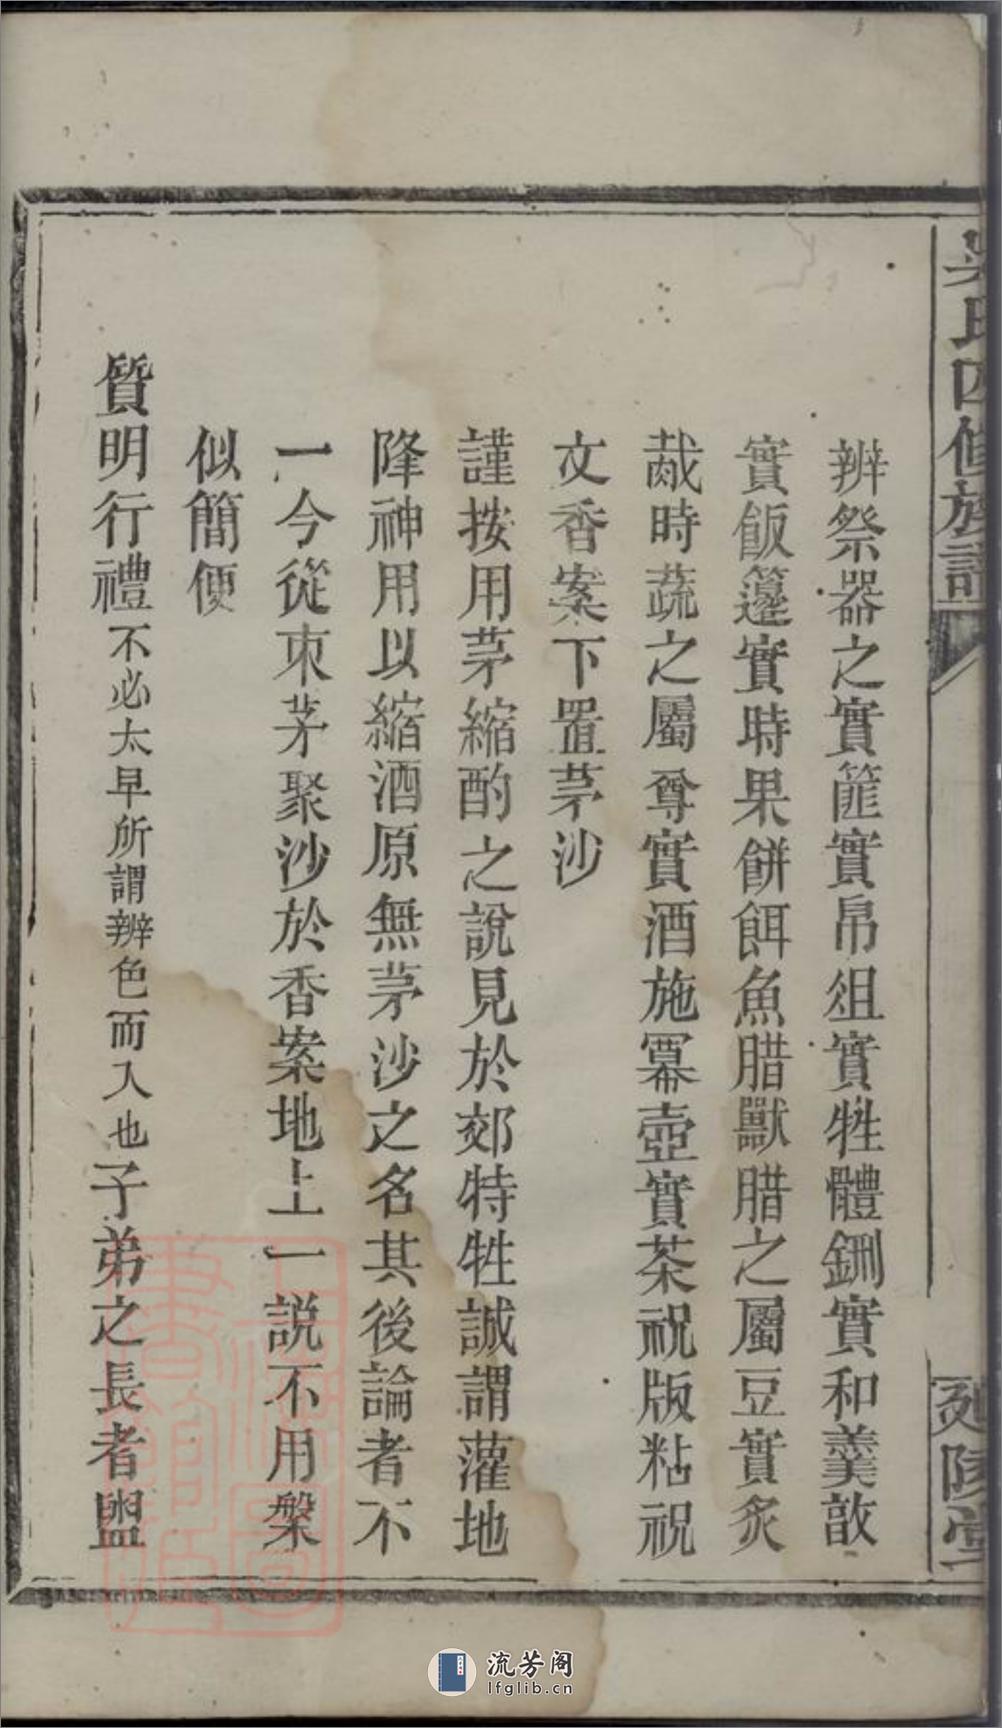 吳氏四修族譜
延陵堂
辨祭器之實篚實帛俎實牲體鉶實和羹敦
實飯籩實時果餅餌魚腊獸腊之屬豆實炙
胾時蔬之屬尊實酒施冪壺實茶祝版粘祝
文香案下置茅沙
謹按用茅縮酌之說見於郊特牲誠謂灌地
降神用以縮酒原無茅沙之名其後論者不
一今從束茅聚沙於香案地上一説不用槃
似簡便
質明行禮不必太早所謂辨色而入也子弟之長者盥
流芳阁
lfglib.cn